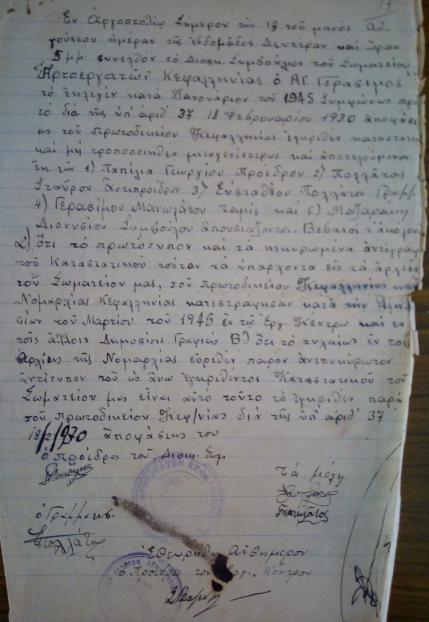 Ἐν Ἀργοστολίῳ Σήμερον τὴν 13 τοῦ μηνὸς Αὐ-
γούστου ἡμέραν τῆς ἑβδομάδος Δευτέραν καὶ ὥραν
5 μμ συνελθὸν τὸ Διοικ. Συμβούλιον τοῦ Σωματείου
Ἀρτοεργατῶν Κεφαλληνίας ὁ Ἅγ. Γεράσιμος
τὸ ἐκλεγὲν κατὰ Ἰανουάριον τοῦ 1945 Συμφώνως πρὸ
τὸ διὰ τῆς ὑπ' ἀριθ 37 18 Φεβρουαρίου 1930 ἀποφάσε
ως τοῦ Πρωτοδικείου Κεφαλληνίας ἐγκριθὲν καταστατι
καὶ μὴ τροποποιηθὲν μεταγενεστέρως καὶ ἀποτελούμενον
ἐκ τῶν 1) Παπίλια Γεωργίου Προέδρου 2) Πολλάτος
Σταῦρον Ἀντιπροέδρου 3) Εὐσταθίου Πολλάτο Γραμμ
4) Γερασίμου Μανωλάτου Ταμίς καὶ 5) Μαζαράκη
Διονυσίου Συμβούλου ἀπουσιάζοντος. Βεβαιοῖ τ' ἀκόλου
α) ὅτι τὸ πρωτότυπον καὶ τὰ κεκυρωμένα ἀντίγραφ
τοῦ Καταστατικοῦ τούτου τὰ ὑπάρχοντα εἰς τὰ ἀρχεῖα
τοῦ Σωματείου μας, τοῦ Πρωτοδικείου Κεφαλληνίας και
Νομαρχίας Κεφαλληνίας κατεστράφησαν κατὰ τὴν
τοῦ Μαρτίου τοῦ 1945 ἐν τῷ Ἐργ Κέντρῳ καὶ ἐν
τοῖς ἄλλοις Δημοσίοις Γραφείοις Β) ὅτι τὸ τυχαίως ἐν το
Ἀρχείοις τῆς Νομαρχίας εὑρεθὲν παρὸν ἀνεπικύρωτον
ἀντίτυπον τοῦ ὡς ἄνω ἐγκριθέντος Καταστατικοῦ τοῦ
Σωματείου μας εἶναι αὐτὸ τοῦτο τὸ ἐγκριθὲν παρὰ
τοῦ Πρωτοδικείου Κεφ/νίας διὰ τῆς ὑπ' ἀριθ 37
18/2/930 ἀποφάσεως του
ὁ Πρόεδρος τοῦ Διοικ. Συμ
τὰ μέλη
ὁ Γραμμτς.
Πολλάτος
Ἐθεωρήθη Αὐθημερὸν
ὁ Πρόεδρος τοῦ Ἐργ. Κέντρου